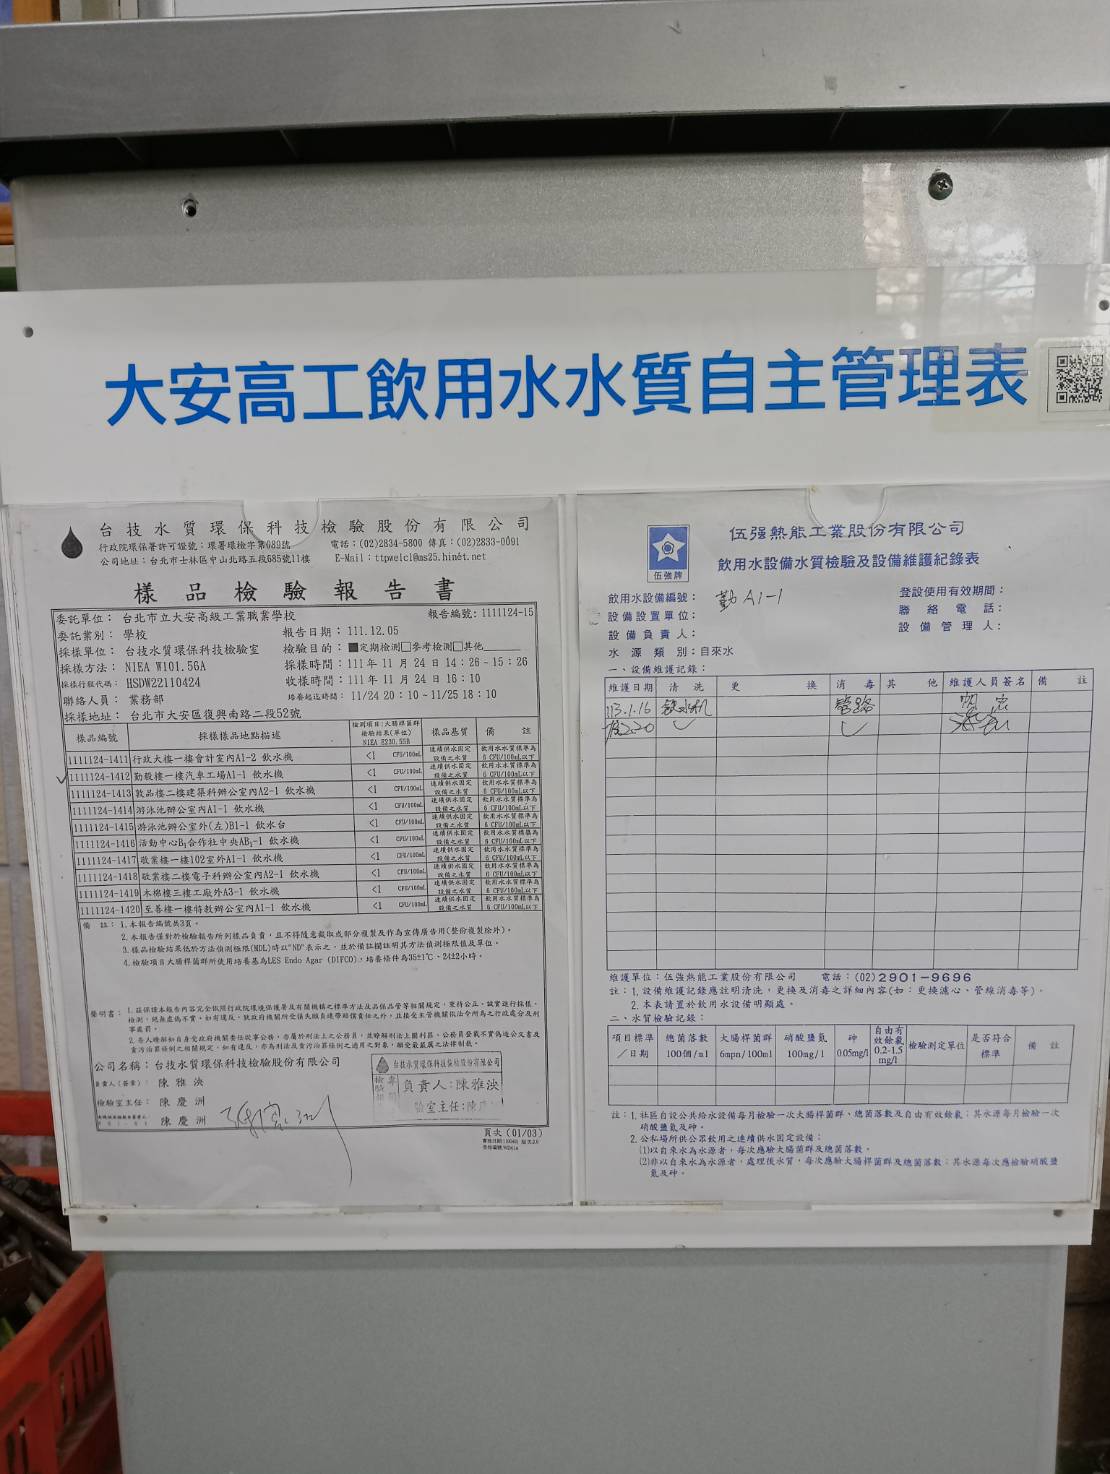 大安高工飲用水水質自主管理表
台技水質環保科技檢驗股份有限公司
行政院環保署許可證號：環署環檢字第089號 電話：(02)2834-5800 傳真：(02)2833-0091
公司地址：台北市士林區中山北路五段685號11樓 E-Mail：ttpwelcl@ms25.hinet.net
樣品檢驗報告書
委託單位：台北市立大安高級工業職業學校 報告編號：1111124-15
委託業別：學校 報告日期：111.12.05
採樣單位：台技水質環保科技檢驗室 檢驗目的：■定期檢測□參考檢測□其他
採樣方法：NIEA W101.56A 採樣時間：111年11月24日14：26~15：26
採樣行程代碼：HSDW22110424 收樣時間：111年11月24日16：10
聯絡人員：業務部 培養起迄時間：11/24 20：10~11/25 18：10
採樣地址：台北市大安區復興南路二段52號
樣品編號 採樣樣品地點描述 檢測項目：大腸桿菌群 檢驗結果(單位) NIEA E230.55B 樣品基質 備註
1111124-1411 行政大樓一樓會計室內A1-2 飲水機 <1 CFU/100mL 連續供水固定設備之水質 飲用水水質標準為6 CFU/100mL以下
1111124-1412 勤毅樓一樓汽車工場A1-1 飲水機 <1 CFU/100mL 連續供水固定設備之水質 飲用水水質標準為6 CFU/100mL以下
1111124-1413 敦品樓二樓建築科辦公室內A2-1 飲水機 <1 CFU/100mL 連續供水固定設備之水質 飲用水水質標準為6 CFU/100mL以下
1111124-1414 游泳池辦公室內A1-1 飲水機 <1 CFU/100mL 連續供水固定設備之水質 飲用水水質標準為6 CFU/100mL以下
1111124-1415 游泳池辦公室外(左)B1-1 飲水台 <1 CFU/100mL 連續供水固定設備之水質 飲用水水質標準為6 CFU/100mL以下
1111124-1416 活動中心B1合作社中央AB1-1 飲水機 <1 CFU/100mL 連續供水固定設備之水質 飲用水水質標準為6 CFU/100mL以下
1111124-1417 敬業樓一樓102室外A1-1 飲水機 <1 CFU/100mL 連續供水固定設備之水質 飲用水水質標準為6 CFU/100mL以下
1111124-1418 敬業樓二樓電子科辦公室內A2-1 飲水機 <1 CFU/100mL 連續供水固定設備之水質 飲用水水質標準為6 CFU/100mL以下
1111124-1419 木棉樓三樓工廠外A3-1 飲水機 <1 CFU/100mL 連續供水固定設備之水質 飲用水水質標準為6 CFU/100mL以下
1111124-1420 至善樓一樓特教辦公室內A1-1 飲水機 <1 CFU/100mL 連續供水固定設備之水質 飲用水水質標準為6 CFU/100mL以下
備註：1.本報告編號共3頁。
2.本報告僅對於檢驗報告所列樣品負責，且不得隨意截取或部分複製及作為宣傳廣告用(整份複製除外)。
3.樣品檢驗結果低於方法偵測極限(MDL)時以"ND"表示之，並於備註欄註明其方法偵測極限值及單位。
4.檢驗項目大腸桿菌群所使用培養基為LES Endo Agar (DIFCO)，培養條件為35±1℃、24±2小時。
公司名稱：台技水質環保科技檢驗股份有限公司
負責人(簽章)：陳雅泱
檢驗室主任：陳慶洲
陳慶洲
台技水質環保科技檢驗股份有限公司
負責人：陳雅泱
檢驗室主任：陳
頁次(01/03)
伍強牌
伍强熱能工業股份有限公司
飲用水設備水質檢驗及設備維護紀錄表
飲用水設備編號：勤A1-1 登設使用有效期間：
設備設置單位： 聯絡電話：
設備負責人： 設備管理人：
水源類別：自來水
一、設備維護記錄：
維護日期 清洗 更換 消毒 其他 維護人員簽名 備註
113.1.16 飲水机 管路
二、水質檢驗記錄：
維護單位：伍強熱能工業股份有限公司 電話：(02)2901-9696
註：1.設備維護記錄應註明清洗，更換及消毒之詳細內容(如：更換濾心、管線消毒等)。
2.本表請置於飲用水設備明顯處。
項目標準／日期 總菌落數100個/ml 大腸桿菌群6mpn/100ml 硝酸鹽氮100mg/l 砷0.05mg/l 自由有效餘氯0.2-1.5mg/l 檢驗測定單位 是否符合標準 備註
註：1.社區自設公共給水設備每月檢驗一次大腸桿菌群、總菌落數及自由有效餘氯；其水源每月檢驗一次
硝酸鹽氮及砷。
2.公私場所供公眾飲用之連續供水固定設備：
(1)以自來水為水源者，每次應驗大腸菌群及總菌落數。
(2)非以自來水為水源者，處理後水質，每次應驗大腸桿菌群及總菌落數；其水源每次應檢驗硝酸鹽
氮及砷。